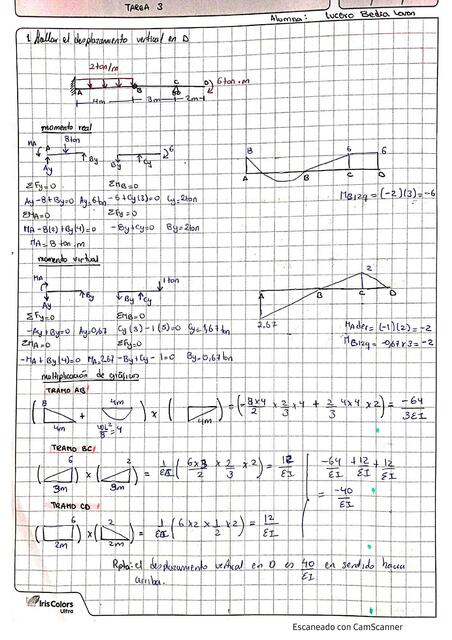 TAREA 3
Alumna: Lucero Bedia Loran
1. Hallar el desplazamiento vertical en D
2 ton/m
A B C D 6 ton.m
4m 3m 2m
momento real
MA A 8 ton
Ay By By Cy 6
ΣFy=0 ΣMB=0
Ay-8+By=0 Ay=6ton -6+Cy(3)=0 Cy=2ton
ΣMA=0 ΣFy=0
MA-8(2)+By(4)=0 -By+Cy=0 By=2ton
MA=8 ton.m
8 6 6
A B C D
MBizq=(-2)(3)=-6
momento virtual
MA 1 ton
Ay By By Cy
ΣFy=0 ΣMB=0
-Ay+By=0 Ay=0,67 Cy(3)-1(5)=0 Cy=1,67ton
ΣMA=0 ΣFy=0
-MA+By(4)=0 MA=2.67 -By+Cy-1=0 By=0,67ton
A B C D
2,67 2
MAder=(-1)(2)=-2
MBizq=-0,67×3=-2
multiplicación de gráficos
TRAMO AB
8 4m + 4m wL²/8=4 × 4m = (-8×4/2 × 2/3 × 4 + 2/3 4×4 × 2) = -64/3EI
TRAMO BC
6 3m × 2 3m = 1/EI (6×3/2 × 2/3 × 2) = 12/EI
-64+12+12/EI
= -40/EI
TRAMO CD
6 2m × 2 2m = 1/EI (6×2×1/2×2) = 12/EI
Rpta: el desplazamiento vertical en D es 40/EI en sentido hacia
arriba.
Iris Colors
Ultra
Escaneado con CamScanner